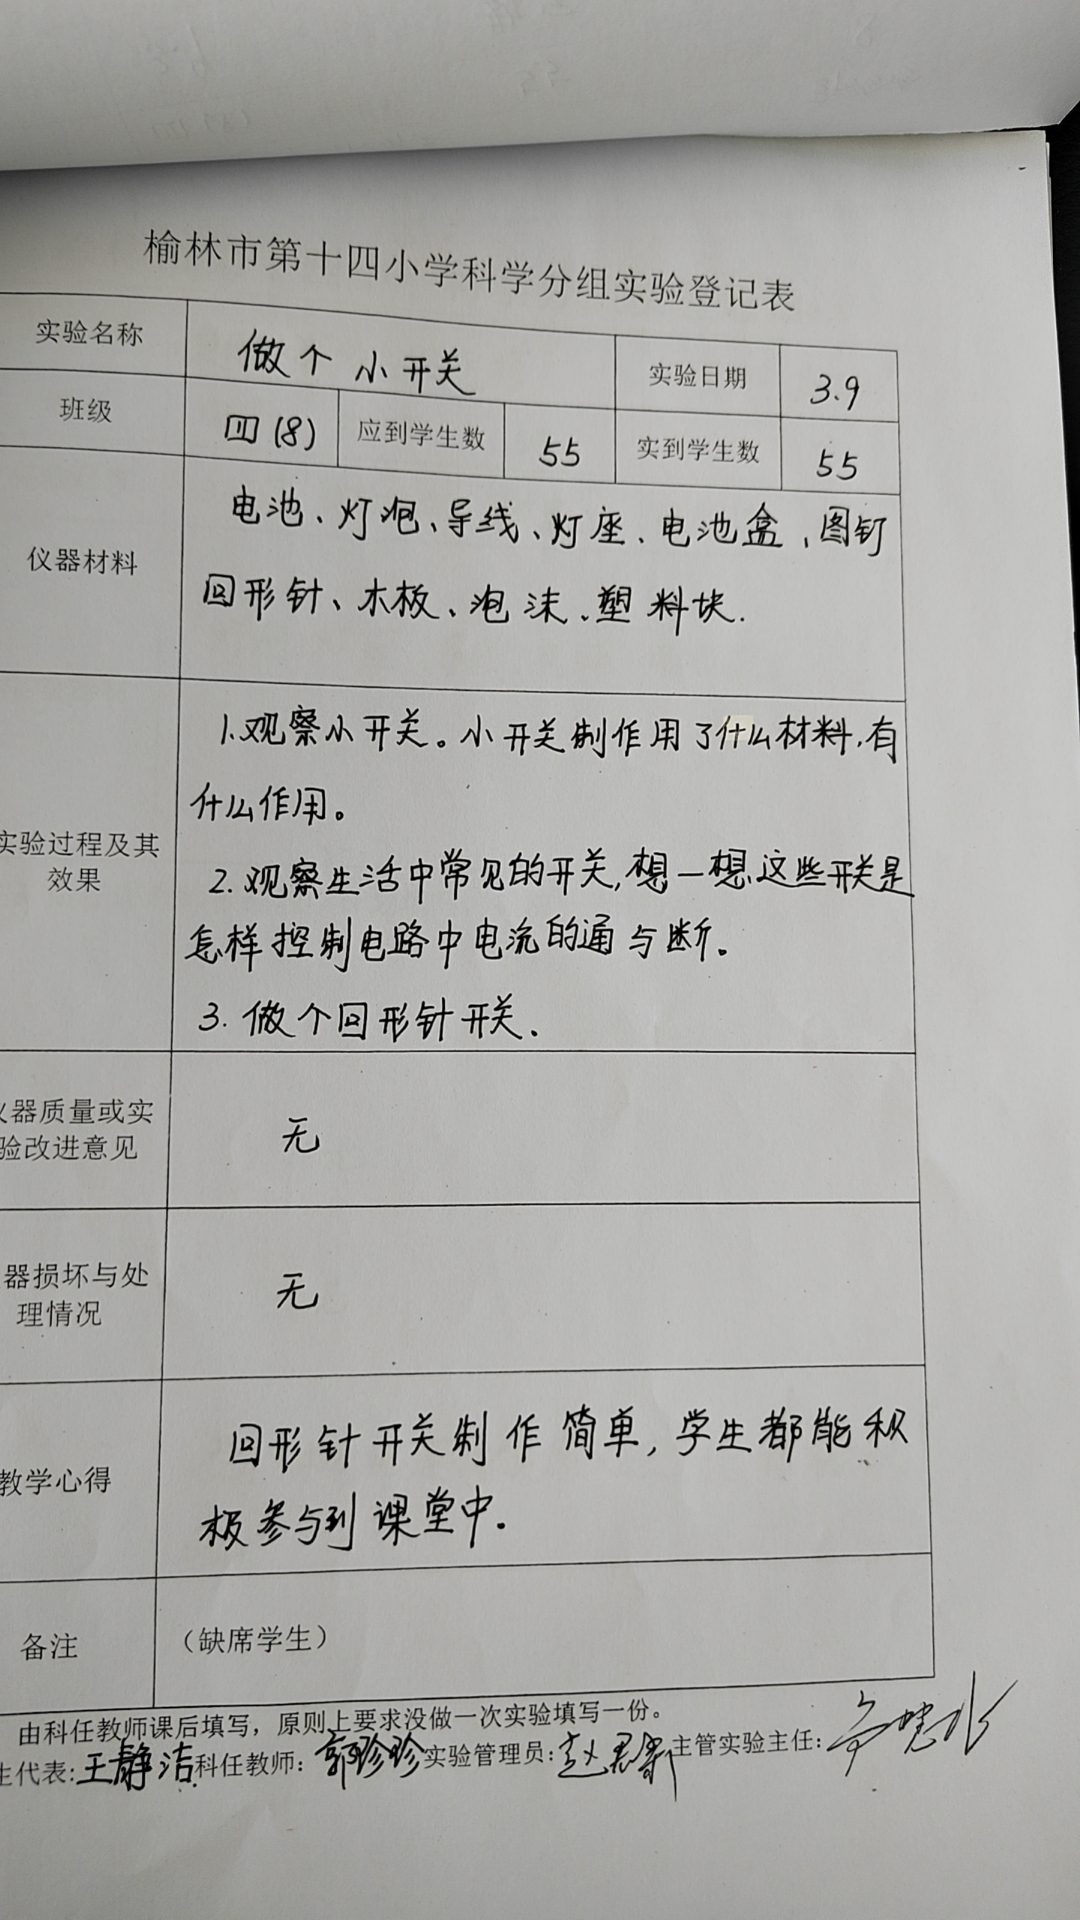 榆林市第十四小学科学分组实验登记表
实验名称 做个小开关 实验日期 3.9
班级 四(8) 应到学生数 55 实到学生数 55
仪器材料
电池、灯泡、导线、灯座、电池盒、图钉
回形针、木板、泡沫、塑料块.
实验过程及其
效果
1.观察小开关。小开关制作用了什么材料,有
什么作用。
2.观察生活中常见的开关,想一想这些开关是
怎样控制电路中电流的通与断。
3.做个回形针开关.
器质量或实
验改进意见
无
器损坏与处
理情况
无
教学心得
回形针开关制作简单,学生都能积
极参与到课堂中.
备注 (缺席学生)
由科任教师课后填写，原则上要求没做一次实验填写一份。
生代表:王静洁 科任教师:郭珍珍 实验管理员: 主管实验主任: